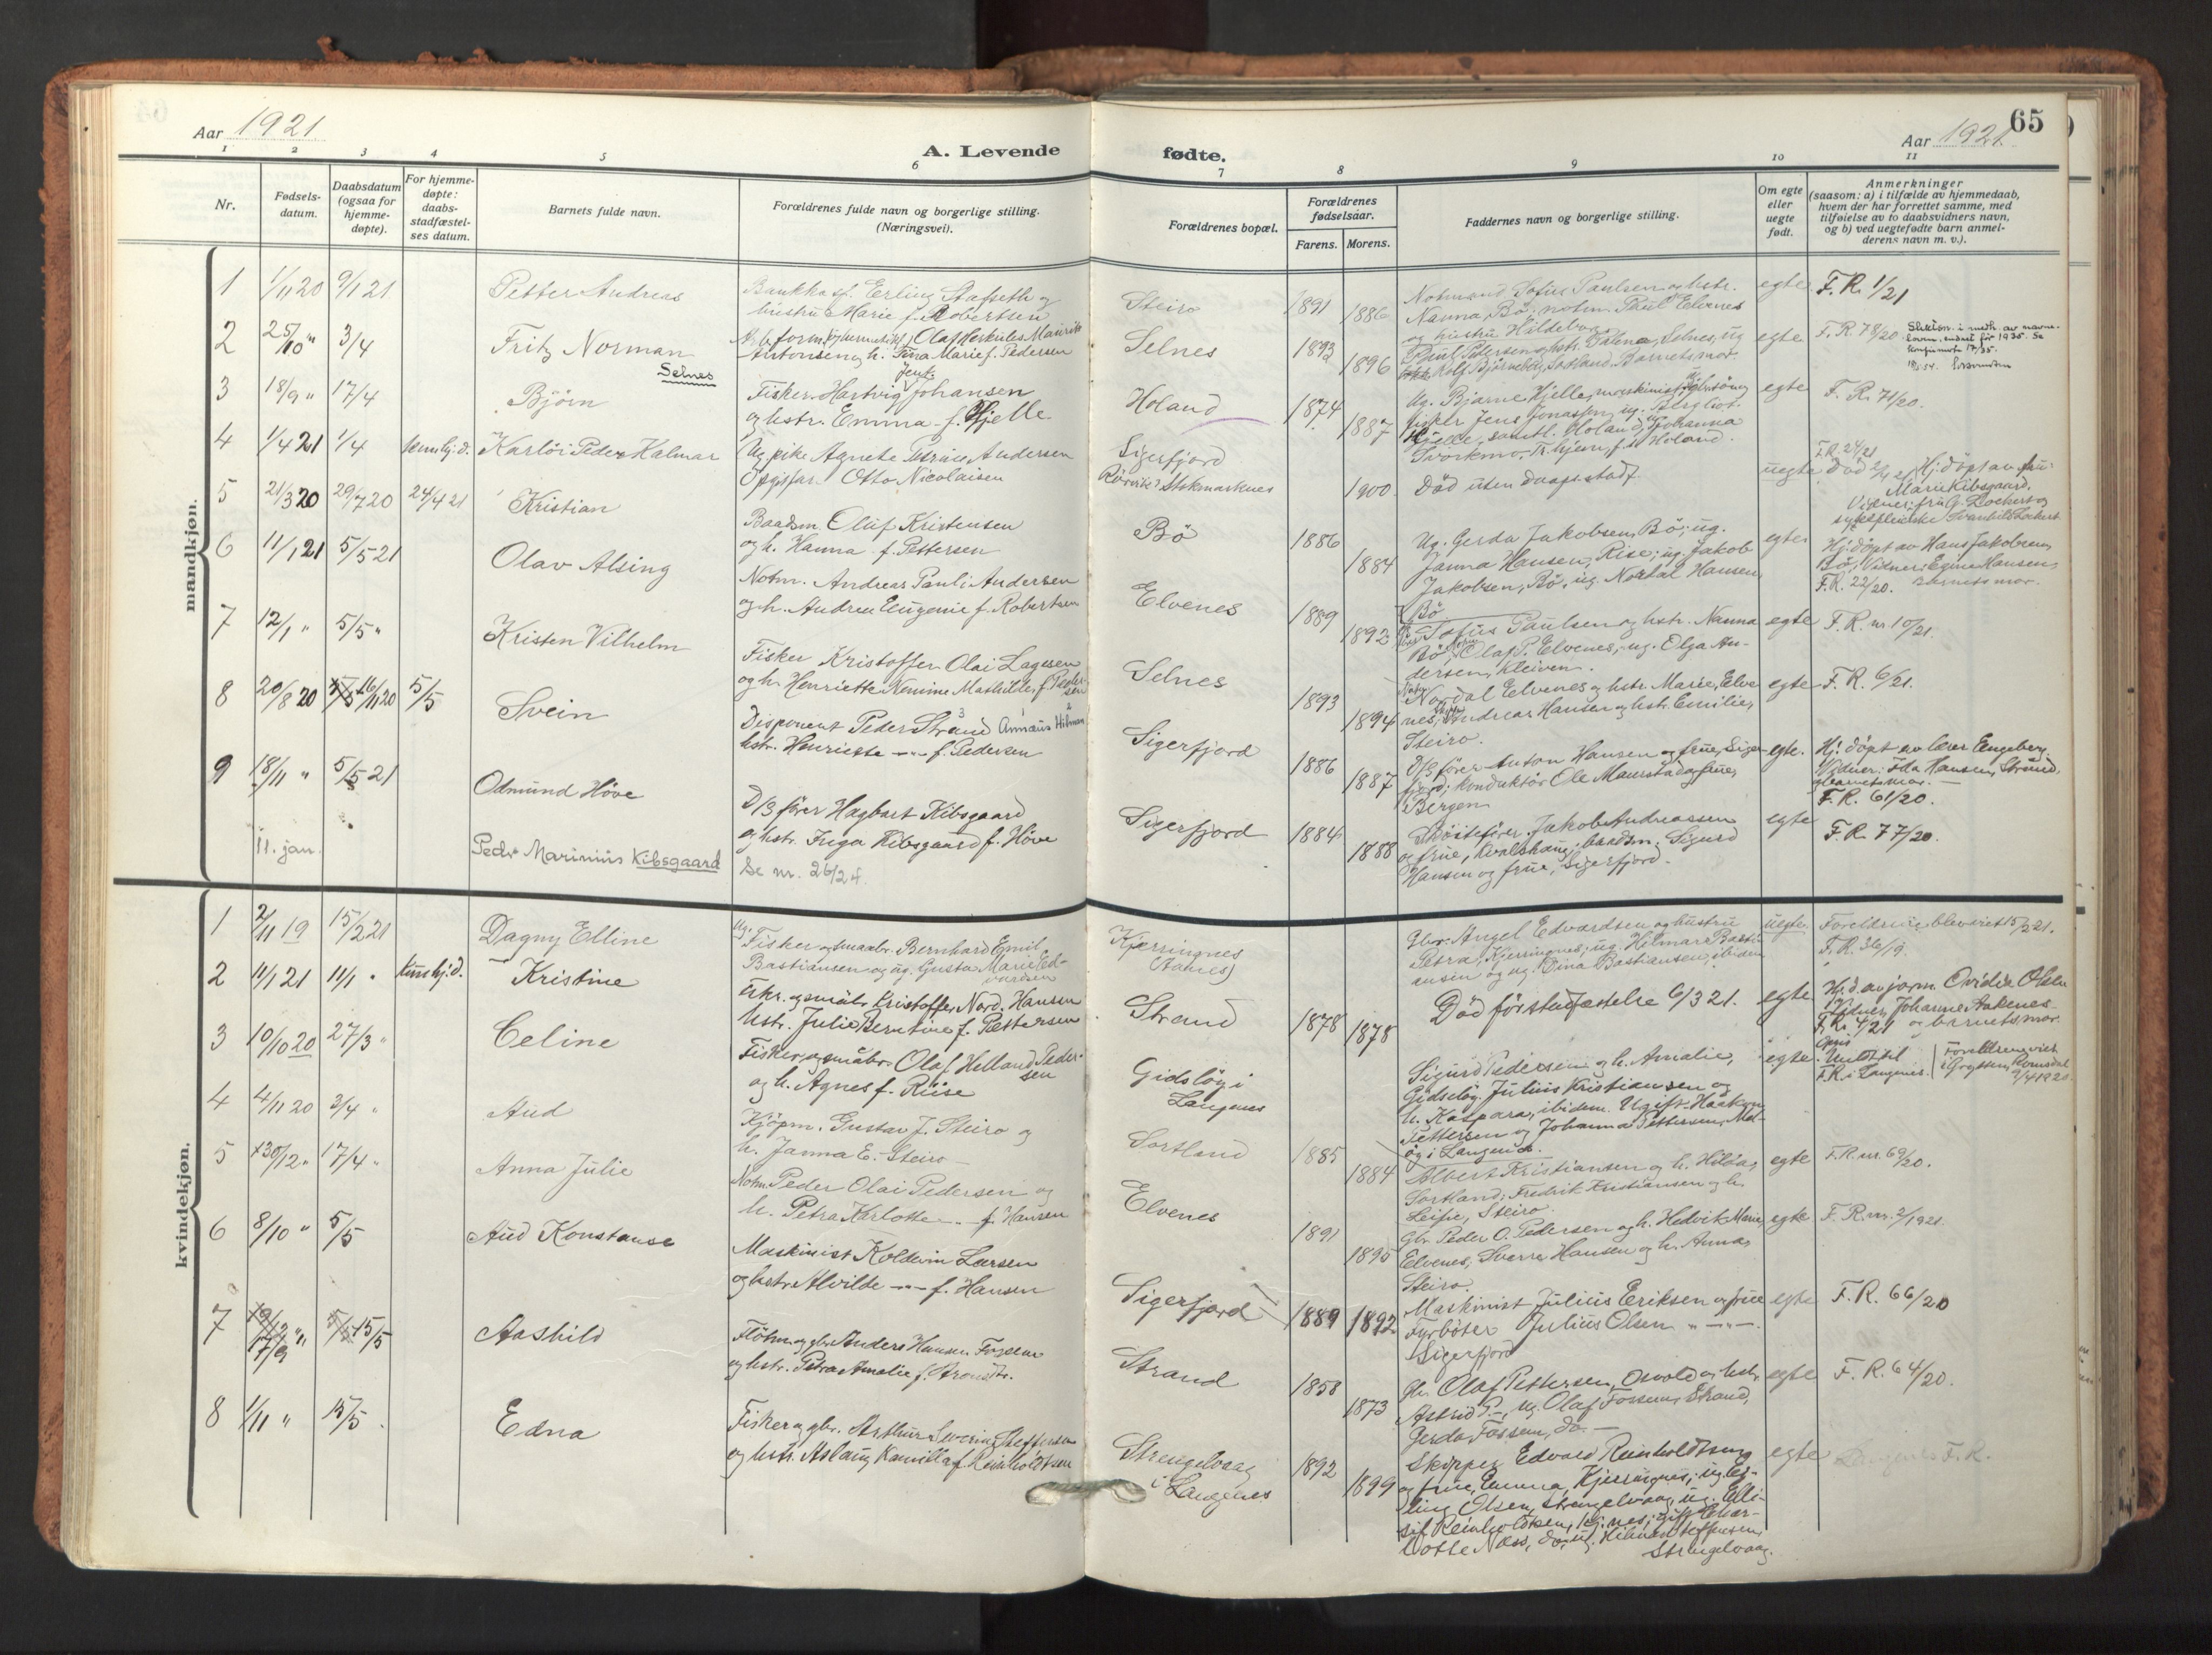 Aar 1921
A. Levende
fødte.
65
Aar 1921
1 2 3 4 5 6 7 8 9 10 11
Nr.
Fødsels-
datum.
Daabsdatum
(ogsaa for
hjemme-
døpte).
For hjemme-
døpte:
daabs-
stadfæstel-
ses datum.
Barnets fulde navn.
Forældrenes fulde navn og borgerlige stilling.
(Næringsvei).
Forældrenes bopæl.
Forældrenes
fødselsaar.
Farens. Morens.
Faddernes navn og borgerlige stilling.
Om egte
eller
uegte
født.
Anmerkninger
(saasom: a) i tilfælde av hjemmedaab,
hvem der har forrettet samme, med
tilføielse av to daabsvidners navn,
og b) ved uegtefødte barn anmel-
derens navn m. v.).
mandkjøn.
1 1/11 20 9/1 21 Petter Andreas
Bankkass. Erling Stafseth og
hustru Marie f. Robertsen
Steiro 1891 1886
Notmand Sofus Paulsen og hstr.
Nanna, Bø; notm. Paul Elvenes
og hustru Hildeborg
egte F.R. 1/21
2 25/10 " 3/4 Fritz Norman
Selnes
Olaf Herkules Maurits
Antonsen og h. Tina Marie f. Pedersen
Selnes 1893 1896
Paul Pedersen og hstr. Dalena, Selnes, ug
Rolf Bjørneberg, Sortland. Barnets mor.
egte F.R. 78/20.
3 18/9 " 17/4 Bjørn
Fisker Hartvig Jent. Johansen
og hstr. Emma f. Hjelle
Holand 1874 1887
Ug. Bjarne Hjelle, maskinist,
fisker Jens Jonassen, ug. Bergliot
Hjelle, samtl. Holand, Johanna
Svorkmo, Tr.hjem, f.t. Holand.
egte F.R. 71/20.
4 1/4 21 1/4 kun hj.d. Karlói Peder Kalmar
Ug. pike Agnete Petrine Andersen
Opgit far. Otto Nicolaisen
Sigerfjord
Rørvik? Stokmarknes
1900.
Død uten daapsstadf.
uegte
F.R. 24/21
Død 2/4 21 Hj.døpt av fru
Marie Kibsgaard.
Vidner: fru G. Lockert og
sykepleierske Svanhild Lockert
5 21/3 20 29/7 20 24/4 21 Kristian
Baadsm. Olaf Kristensen
og h. Hanna f. Pettersen
Bø 1886 1884
Ug. Gerda Jakobsen, Bø; ug.
Janna Hansen, Rise; ug. Jakob
Jakobsen, Bø, ug. Nortal Hansen,
Bø
egte
Hj.døpt av Hans Jakobsen,
Bø, Vidner: Egine Hansen,
F.R. 22/20. Barnets mor.
6 11/1 21 5/5 21 Olav Alsing
Notm. Andreas Pauli Andersen
og h. Andrea Eugenie f. Robertsen
Elvenes 1889 1892
Sofus Paulsen og hstr. Nanna
Bø, Olaf P. Elvenes, ug. Olga An-
dersen, Kleiven.
egte F.R. nr. 10/21.
7 12/1 " 5/5 " Kristen Vilhelm
Fisker Kristoffer Olai Lagesen
og h. Henriette Nemine Mathilde, f. Peder-
sen
Selnes 1893 1894
Notm. Nordal Elvenes og hstr. Marie, Elve
nes, Andreas Hansen og hstr. Emilie,
Steiro.
egte F.R. 6/21.
8 20/8 20 16/11 20 5/5 Svein
Disponent Peder Strand Annæus Hilman
hstr. Henriette —"— f. Pedersen
Sigerfjord 1886 1887
D/S fører Anton Hansen og frue, Siger-
fjord; konduktør Ole Maurstad og frue,
Bergen
egte.
Hj. døpt av lærer Engeberg.
Vidner: Ida Hansen, Strand,
og barnets mor. —
F.R. 61/20.
9 18/11 " 5/5 21 Odmund Høve
D/S fører Hagbart Kibsgaard
og hstr. Inga Kibsgaard f. Høve
Sigerfjord 1884 1888
Skøitefører Jakob Andreassen
og frue, Kvalshaug, baadsm. Sigurd
Hansen og frue, Sigerfjord.
egte F.R. 77/20.
11. jan. Peder Marinius Kibsgaard
Se nr. 26/24.
kvindekjøn.
1 2/11 19 15/2 21 Dagny Elline
Ug. Fisker og smaabr. Bernhard Emil
Bastiansen og ug. Gusta Marie Ed-
vardsen
Kjerringnes
(Aanes)
Gbr. Angel Edvardsen og hustru
Petra, Kjerringnes; ug. Hilmar Basti-
ansen og ug. Dina Bastiansen, ibidem
uegte. Foreldrene blev viet 15/2 21.
F.R. 36/19.
2 11/1 21 11/1 " kun hj.d. Kristine
Fiskr. og småbr. Kristoffer Nord. Hansen
hstr. Julie Berntine f. Pettersen
Strand 1878 1878
Død før stadfæstelse 6/3 21.
egte
Hj.d. av jorm. Ovidia Olsen
Vidner, Johanne Aakenes
F.R. 4/21 og barnets mor.
3 10/10 20 27/3 " Celine
Fisker og småbr. Olaf Helland Peder-
sen
og h. Agnes f. Riise
Gidsløy i
Langenes
Sigurd Pedersen og h. Amalie,
Gidsløy. Julius Kristiansen og
h. Kaspara, ibidem. Ugift Haakon
Pettersen og Johanna Pettersen, Mel-
øy i Langenes.
egte
F.R. i Langenes. Foreldrene viet
i Grytten, Romsdal
4 4/11 20 3/4 " Aud
Kjøpm. Gustav J. Steiro og
h. Janna E. Steiro —
Sortland 1885 1884
Albert Kristiansen og h. Hilda,
Sortland; Fredrik Kristiansen og h.
Leifie, Steiro.
egte F.R. nr. 69/20.
5 +30/12 " 17/4 " Anna Julie
Notm. Peder Olai Pedersen og
h. Petra Karlotte —"— f. Hansen
Elvenes 1891 1895
Gbr. Peder O. Pedersen og h. Hedvik Marie,
Elvenes, Sverre Hansen og h. Anna,
Steiro.
egte F.R. nr. 2/1921.
6 8/10 " 5/5 Aud Konstanse
Maskinist Koldevin Larsen
og hstr. Alvilde —"— f. Hansen
Sigerfjord 1889 1892
Maskinist Julius Eriksen og frue
Fyrbøter Julius Olsen " —"—.
Sigerfjord
egte F.R. 66/20
7 17/9 " 15/5 Aashild
Fløtm. og gbr. Anders Hansen Fossem
og hstr. Petra Amalie f. Aronsdtr.
Strand 1858 1873
Gbr. Olaf Pettersen, Osvold og hstr.
Astrid P—, ug. Olaf Fossem, Strand,
Gerda Fossem, do. —
egte F.R. 64/20.
8 1/11 " 15/5. Edna
Fisker og gbr. Arthur Severin Steffensen
og hstr. Aslaug Kamilla f. Reinholdtsen
Strengelvaag
i Langenes
1892 1899
Skipper Edvard Reinholdtsen
og frue, Emma, Kjerringnes; ug. Er-
ling Olsen, Strengelvaag, ug. Elli-
sif Reinholdtsen, Kj.nes; gift Char-
lotte Næss, do, ug. Hilmar Steffensen,
Strengelvaag.
egte Langenes F.R.